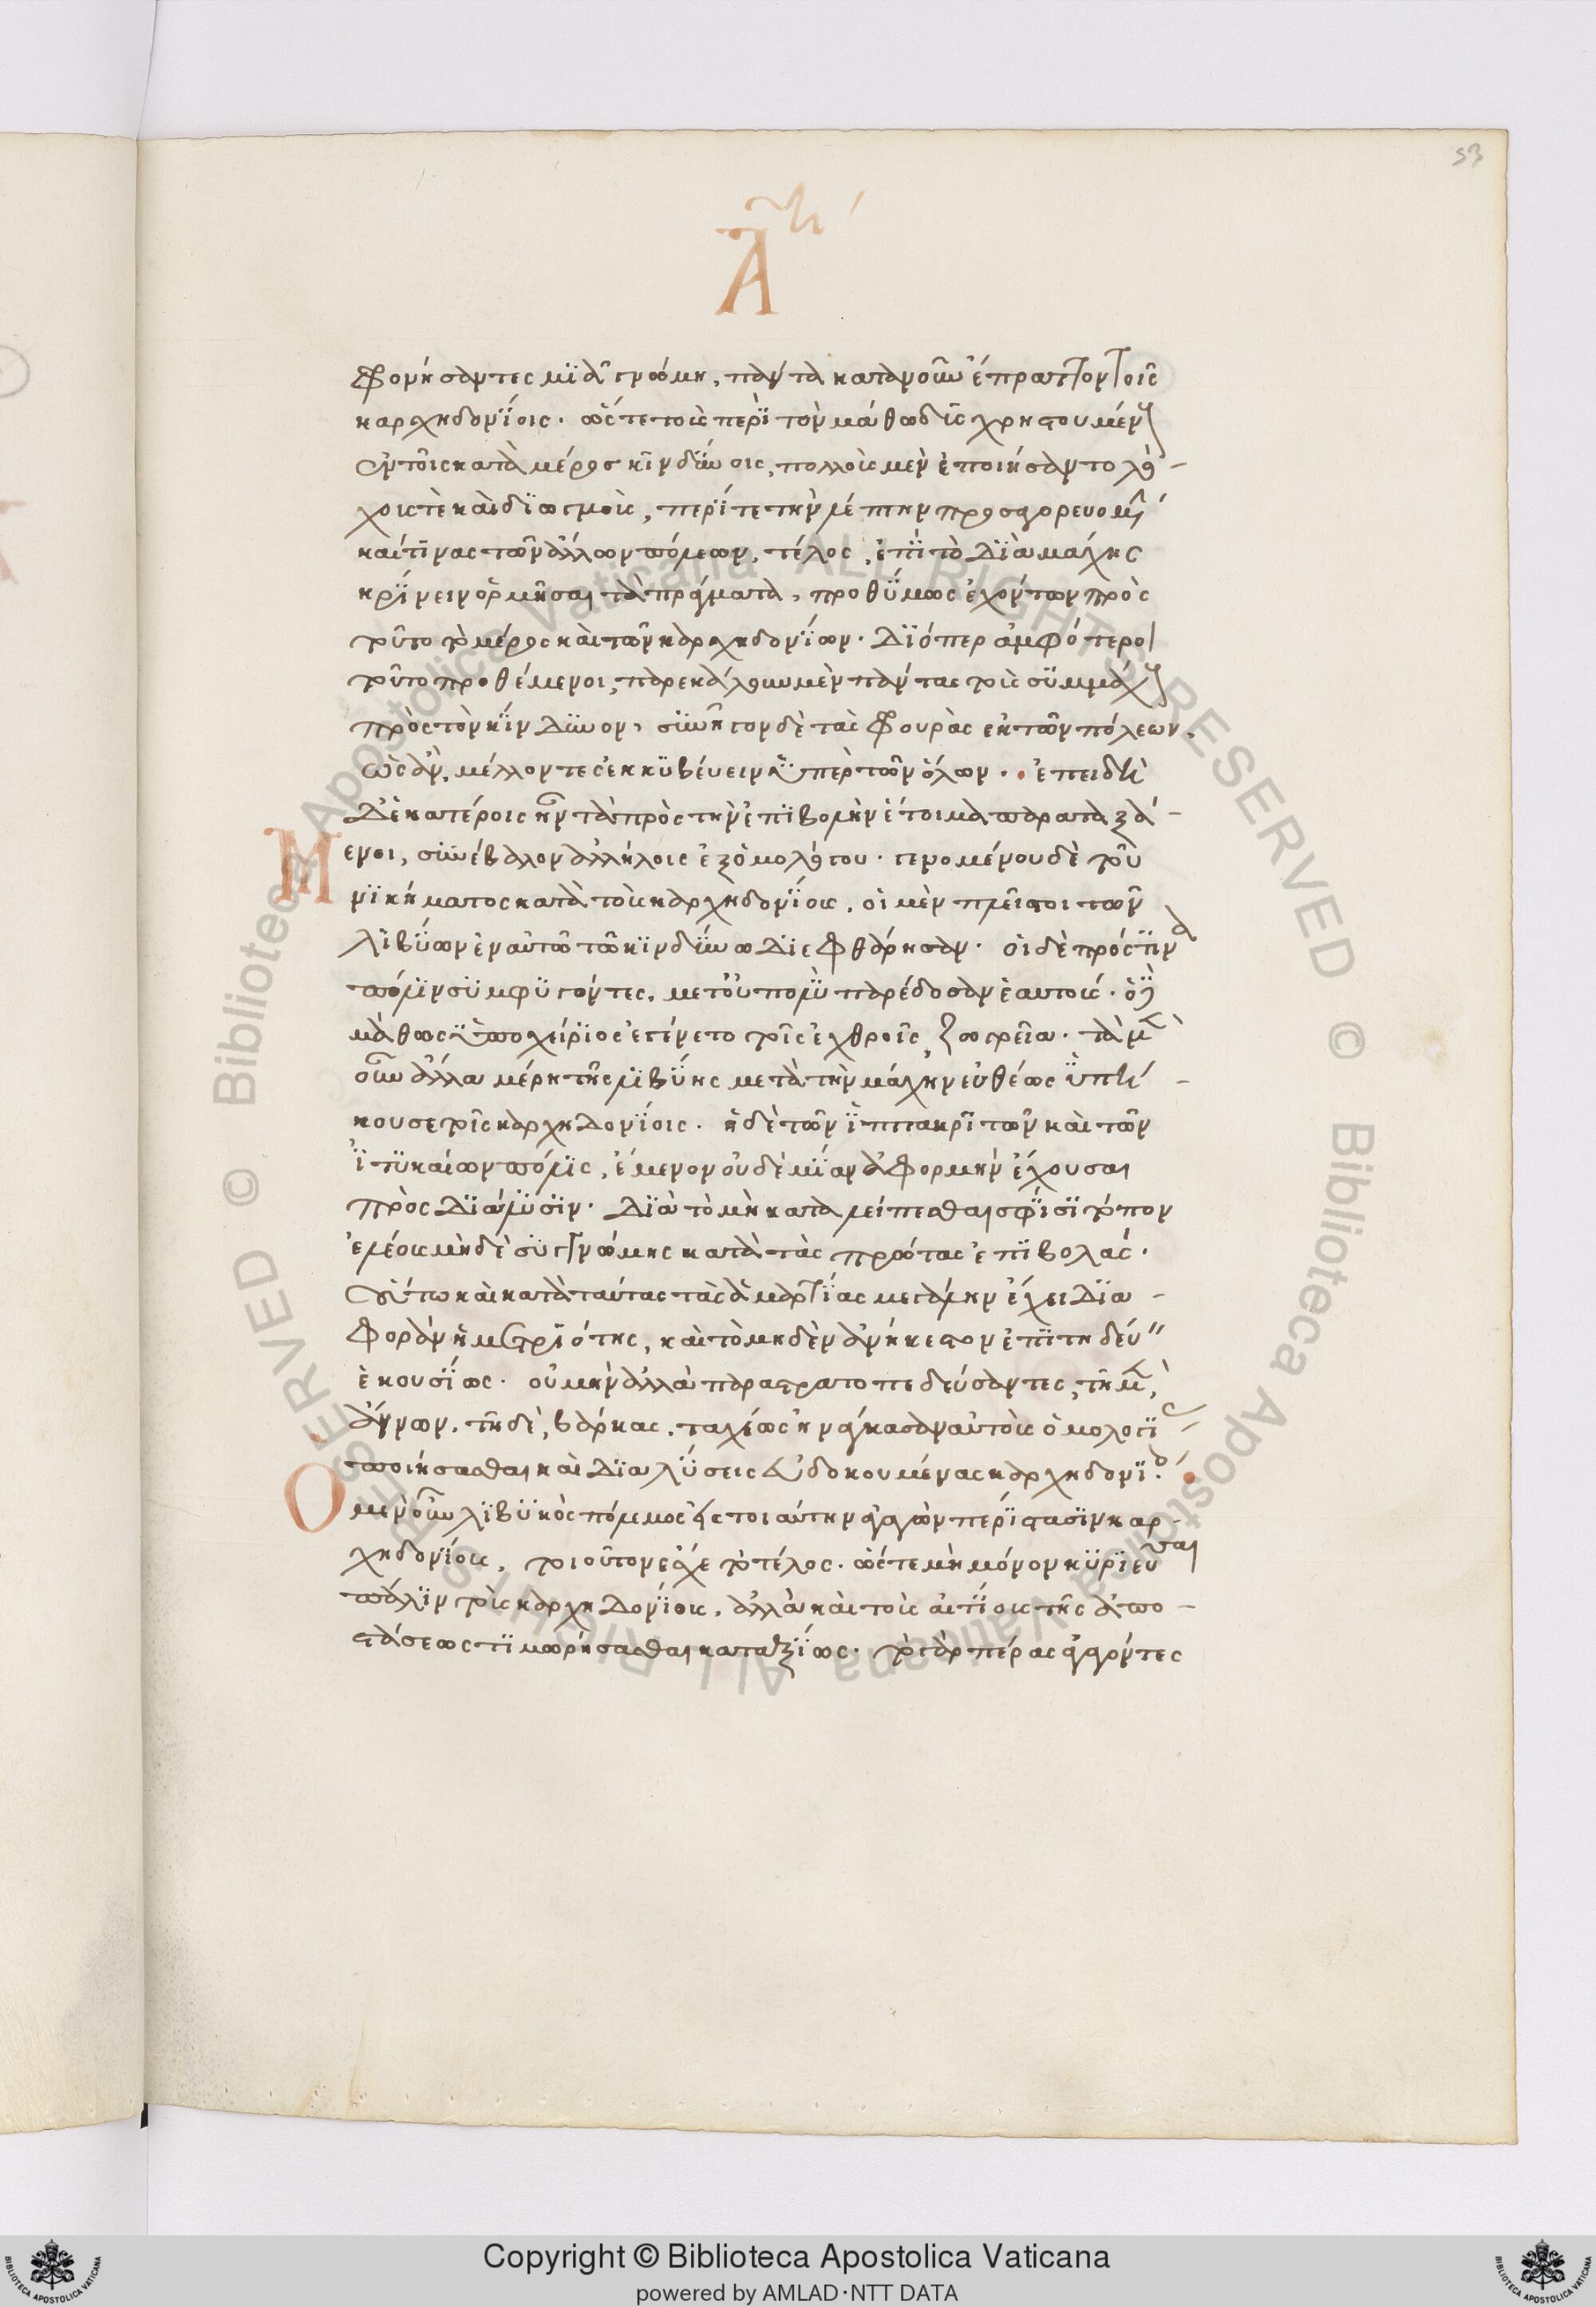 53
Α
φρονήσαντες μϊᾶ γνώμη, πάντα κατανοῦν ἔπραττον τοῖς
καρχηδονΐοις. ὥστε τοὺς περῒ τὸν μάθω δῒς χρησουμένους
ἐν τοῖς κατὰ μέρος κινδΰνοις, πολλοὺς μὲν ἐποιήσαντο λό-
χους τὲ καὶ δϊωγμοὺς, περΐ τε τὴν λέπτιν προσαγορευομένην
καί τινας τῶν ἄλλων πόλεων. τέλος, ἐπῒ τὸ διὰ μάχης
κρΐνειν ὁρμῆσαι τὰ πράγματα, προθΰμως ἐχόντων πρὸς
τοῦτο τὸ μέρος καὶ τῶν καρχηδονΐων. διόπερ ἀμφότεροι
τοῦτο προθέμενοι, παρεκάλουν μὲν πάντας τοὺς συμμάχους
πρὸς τὸν κΐνδυνον, συνῆγον δὲ τὰς φρουρὰς ἐκ τῶν πόλεων.
ὡς ἂν, μέλλοντες ἐκκυβεύειν ὑπὲρ τῶν ὅλων. ἐπειδὴ
δ' ἑκατέροις ἦν τὰ πρὸς τὴν ἐπϊβολὴν ἕτοιμα παραταξά-
Μενοι, συνέβαλον ἀλλήλοις ἐξ ὁμολόγου. γενομένου δὲ τοῦ
νϊκήματος κατὰ τοὺς καρχηδονΐους. οἱ μὲν πλεῖστοι τῶν
λιβΰων ἐν αὐτῶ τῶ κινδΰνω διεφθάρησαν. οἱ δὲ πρός τινα
πόλϊν συμφυγόντες. μετ' οὐ πολὺ παρέδοσαν ἑαυτούς. ὁ δὲ
μάθως ὑποχείριος ἐγένετο τοῖς ἐχθροῖς ζωγρεία. τὰ μὲν
οὖν ἄλλα μέρη τῆς λιβΰης μετὰ τὴν μάχην εὐθέως ὑπή-
κουσε τοῖς καρχηδονΐοις. ἡ δὲ τῶν ἱππακρῑτῶν καὶ τῶν
ἰτυκαίων πόλις, ἔμενον οὐδὲ μΐαν ἀφορμὴν ἔχουσαι
πρὸς διάλυσϊν. διὰ τὸ μὴ καταλείπεσθαι σφίσϊ τόπον
ἐλέους μὴ δὲ συγγνώμης κατὰ τὰς πρώτας ἐπϊβολάς.
οὕτω καὶ κατὰ ταύτας τὰς ἁμαρτΐας μεγάλην ἔχει δια-
φορὰν ἡ μετριότης, καὶ τὸ μηδὲν ἀνήκεστον ἐπιτηδεύειν
ἑκουσΐως. οὐ μὴν ἀλλὰ παραστρατοπεδεύσαντες, τῆ μὲν,
ἄννων. τῆ δὲ, βάρκας. ταχέως ἠνάγκασαν αὐτοὺς ὁμολογίας
ποιήσασθαι καὶ διαλΰσεις εὐδοκουμένας καρχηδονΐοις.
Ο μὲν οὖν λϊβϋκὸς πόλεμος εἰς τοιαύτην ἀγαγὼν περίστασϊν καρ-
χηδονΐους, τοιοῦτον ἔσχε τὸ τέλος. ὥστε μὴ μόνον κυριεῦσαι
πάλιν τοὺς καρχηδονΐους. ἀλλὰ καὶ τοὺς αἰτΐους τῆς ἀπο-
στάσεως τιμωρήσασθαι καταξΐως. τὸ γὰρ πέρας ἀγαγόντες
Copyright © Biblioteca Apostolica Vaticana
powered by AMLAD·NTT DATA